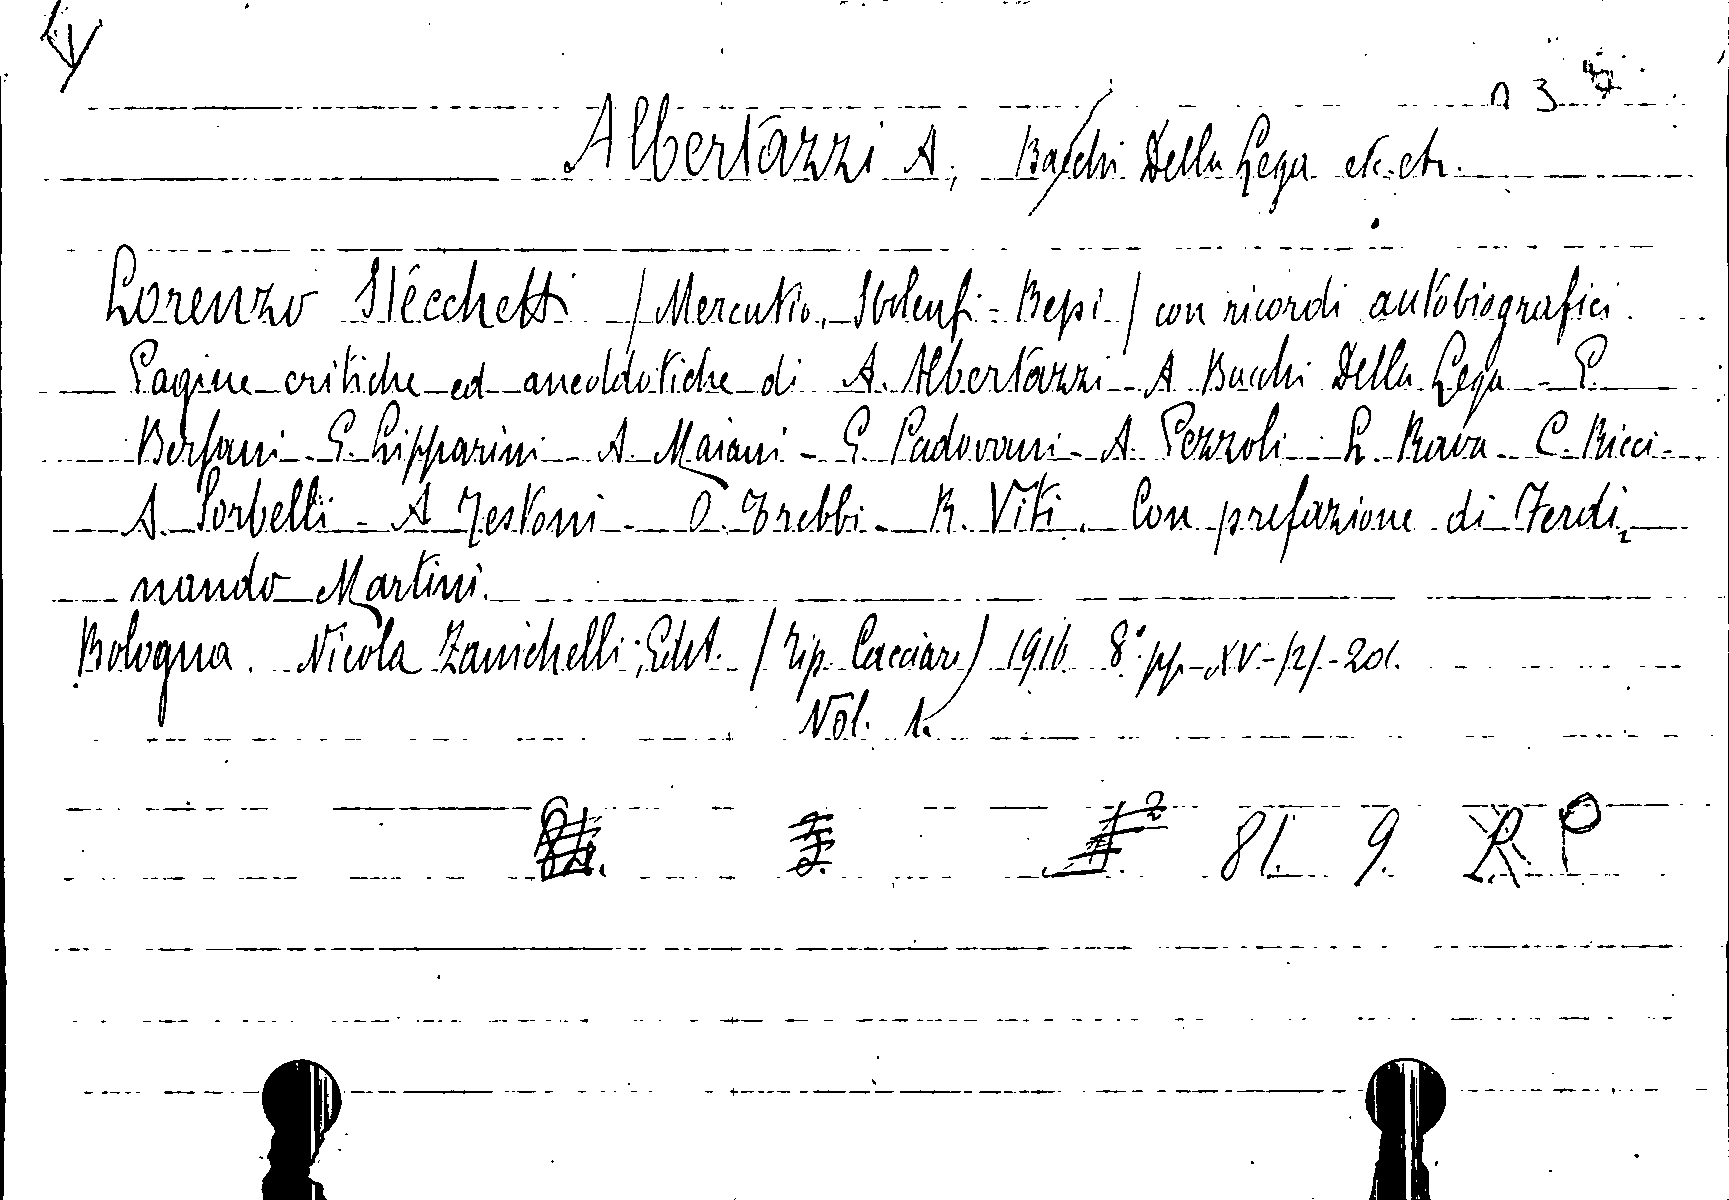 Albertazzi A, Bacchi Della Lega etc. etc.
Lorenzo Stecchetti (Mercutio, Sbolenfi - Bepi) con ricordi autobiografici.
Pagine critiche ed aneddotiche di A. Albertazzi - A Bacchi Della Lega - E.
Bersani - G. Lipparini - A. Maiani - G. Padovani - A. Pezzoli - L. Rava - C. Ricci -
A. Sorbelli - A Testoni - O. Trebbi - R. Viti. Con prefazione di Ferdi=
nando Martini.
Bologna. Nicola Zanichelli, Edit. (Tip. Cacciari) 1916 8° pp. XV-(2)-201.
Vol. 1.
81. 9. R P